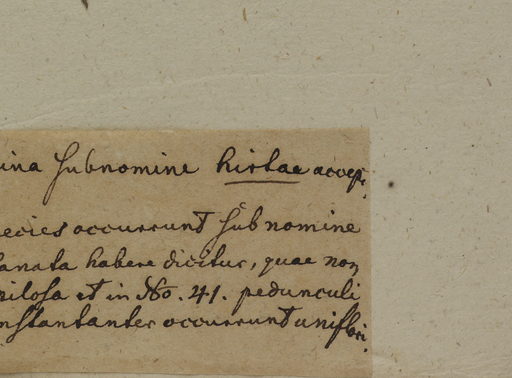 ina subnomine hirtae accepi.
ecies occurrunt sub nomine
lanata habere dicitur, quae non
pilosa et in No. 41. pedunculi
nstantanter occurrunt uniflori.